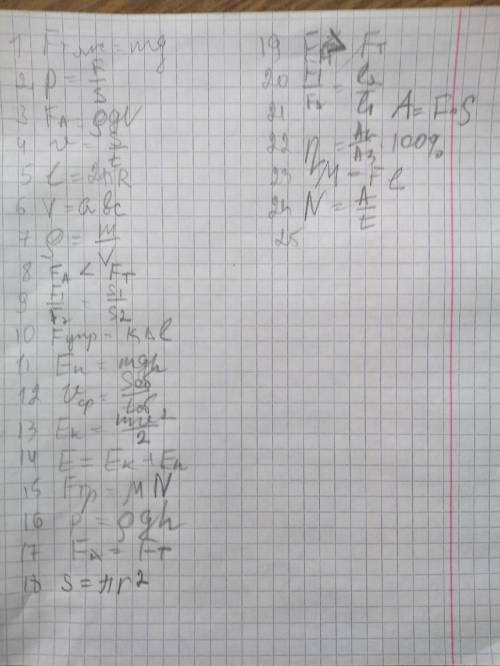 1 Fтяж = mg
2 p = F/S
3 FA = ρgV
4 v = S/t
5 C = 2πR
6 V = abc
7 ρ = m/V
8 FA < FT
9 F1/F2 = S1/S2
10 Fупр = kΔl
11 Eп = mgh
12 Vср = Sоб/tоб
13 Eк = mv²/2
14 E = Eк + Eп
15 Fтр = μN
16 p = ρgh
17 FA = FT
18 S = πr²
19 FA > FT
20 F1/F2 = l2/l1
21 A = F·S
22 η = Aп/Aз · 100%
23 M = Fl
24 N = A/t
25